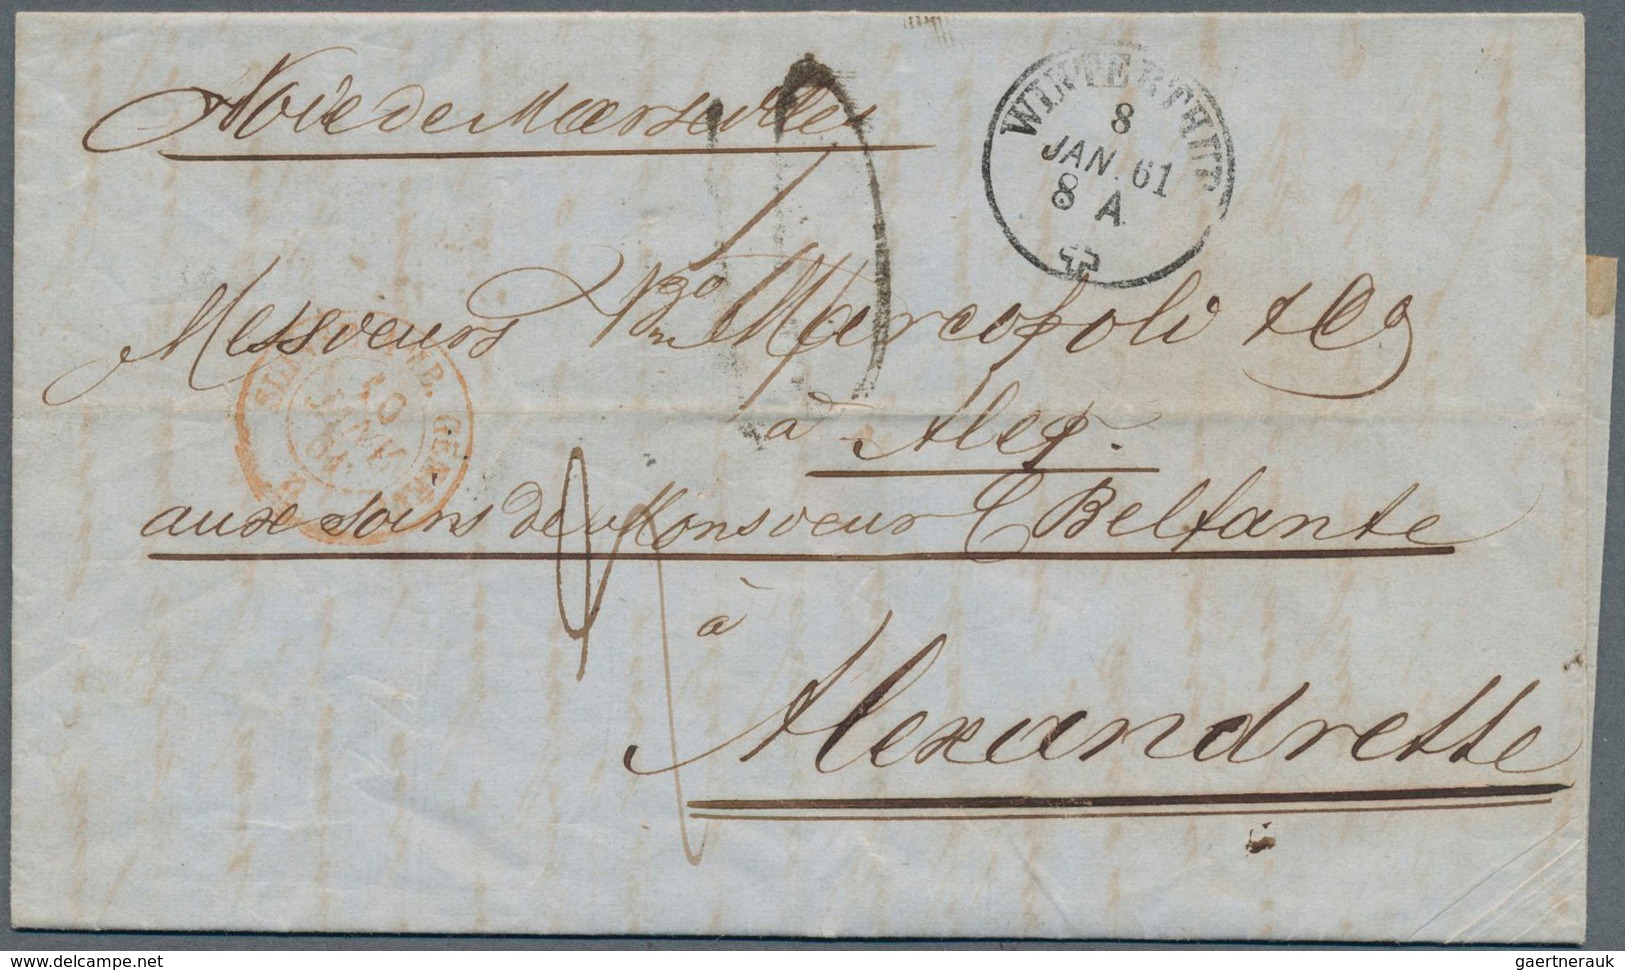 Voie de Marseille
WINTERTHUR
8
JAN. 61
8 A
Messieurs Vzo Marcopoli & Co
à Alep.
10
JANV.
61
aux soins de Monsieur C Belfante
à
Alexandrette
delcampe.net
gaertnerauk